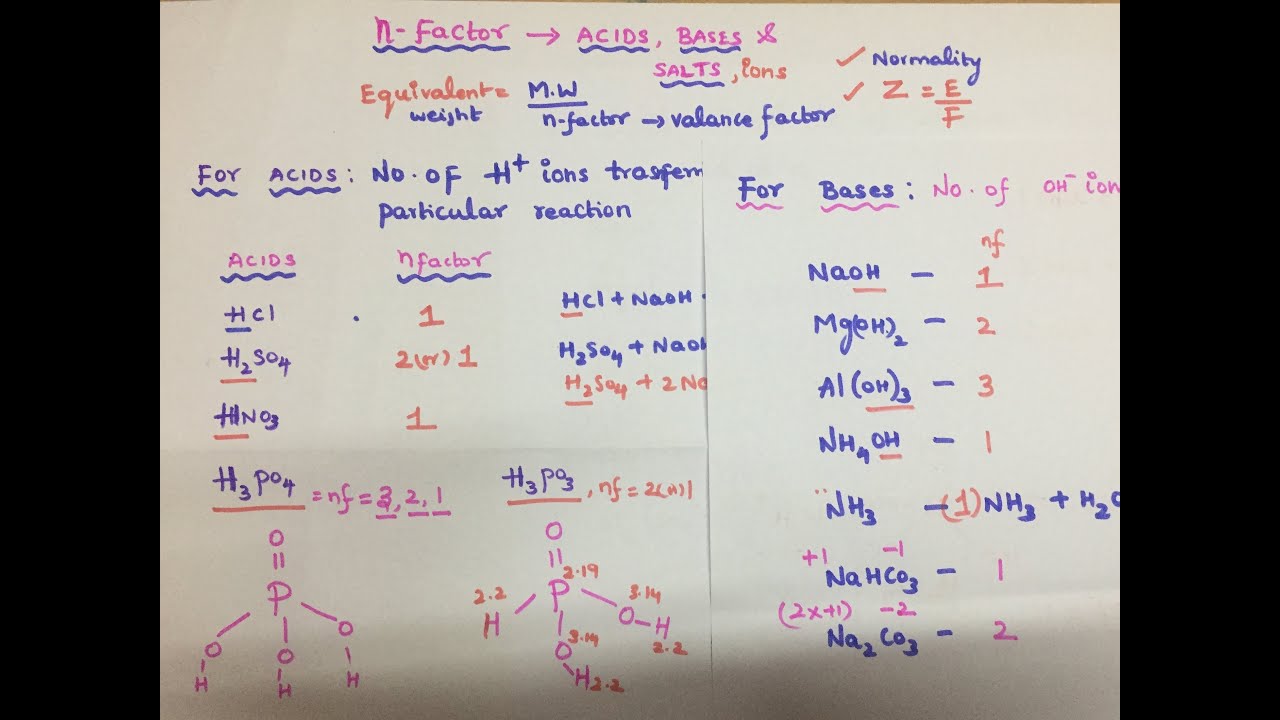 n-factor → ACIDS, BASES &
SALTS, ions
Equivalent = M.W
weight n-factor → valance factor
✓ Normality
✓ Z = E
F
For ACIDS: No. of H⁺ ions trasfern
particular reaction
ACIDS nfactor
HCl 1 HCl + NaOH
H₂SO₄ 2(or) 1 H₂SO₄ + NaOH
H₂SO₄ + 2 Na
HNO₃ 1
H₃PO₄ = nf = 3, 2, 1
O
P
O O O
H H H
H₃PO₃, nf = 2(or) 1
O
2.2 2.19 3.14
H P O-H
3.14 2.2
O
H 2.2
For Bases: No. of OH⁻ ion
nf
NaOH - 1
Mg(OH)₂ - 2
Al(OH)₃ - 3
NH₄OH - 1
N̈H₃ - (1) NH₃ + H₂O
+1 -1
NaHCO₃ - 1
(2x+1) -2
Na₂CO₃ - 2